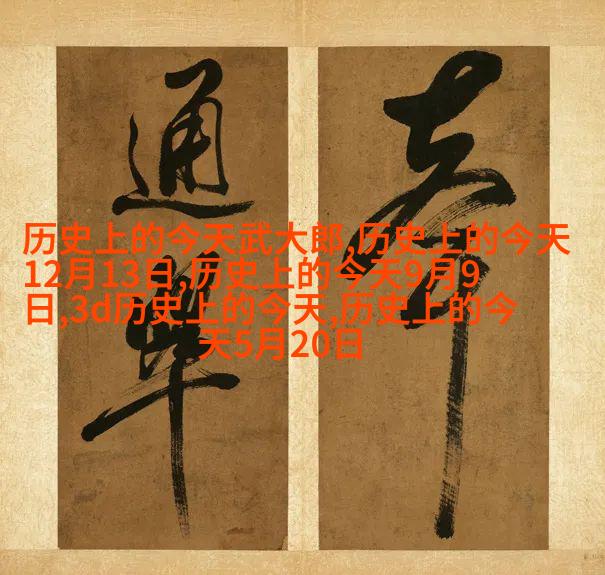 历史上的今天武大郎,历史上的今天
12月13日,历史上的今天9月9
日,3d历史上的今天,历史上的今
天5月20日
通